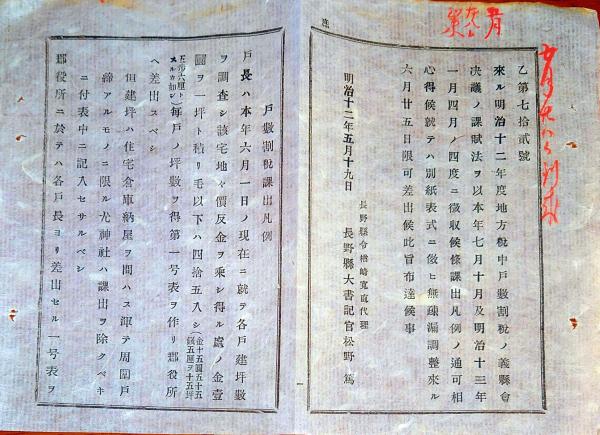 乙第七拾貳號
來ル明治十二年度地方稅中戶數割稅ノ義縣會
决議ノ課賦法ヲ以本年七月十月及明治十三年
一月四月ノ四度ニ徵收候條課出凡例ノ通可相
心得候就テハ別紙表式ニ倣ヒ無疎漏調整來ル
六月廿五日限可差出候此旨布達候事
明治十二年五月十九日
長野縣令楢崎寬直代理
長野縣大書記官松野篤
戶數割稅課出凡例
戶長ハ本年六月一日ノ現在ニ就テ各戶建坪數
ヲ調查シ該宅地々價反金ヲ乘シ得ル處ノ金壹
圓ヲ一坪ト積リ毛以下ハ四捨五入シ(金十五圓五十五
錢五厘ヲ十五坪
五分六厘ト
スルカ如シ)每戶ノ坪數ヲ得第一号表ヲ作リ郡役所
ヘ差出スベシ
但建坪ハ住宅倉庫納屋ヲ問ハス渾テ周圍戶
締アルモノニ限ル尤神社ハ課出ヲ除クベキ
ニ付表中ニ記入セサルベシ
郡役所ニ於テハ各戶長ヨリ差出セル一号表ヲ